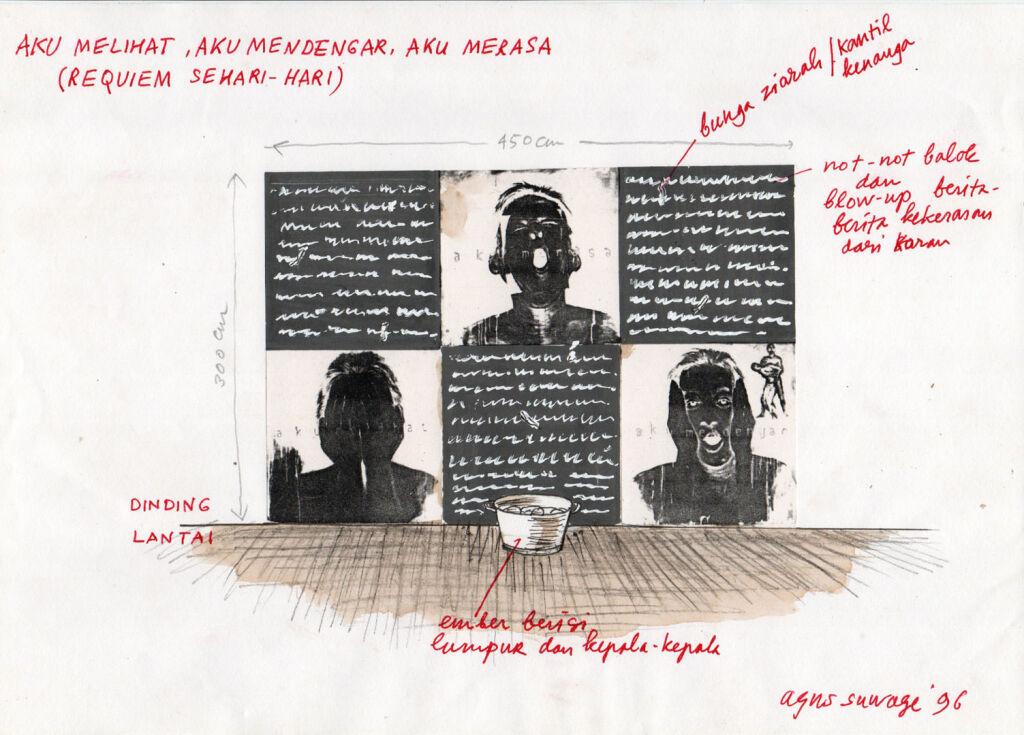 AKU MELIHAT, AKU MENDENGAR, AKU MERASA
(REQUIEM SEHARI-HARI)
bunga ziarah/kantil
kenanga
450 cm
not-not balok
dan
blow-up berita-
berita kekerasan
dari koran
300 cm
DINDING
LANTAI
ember berisi
lumpur dan kepala-kepala
agus suwage '96